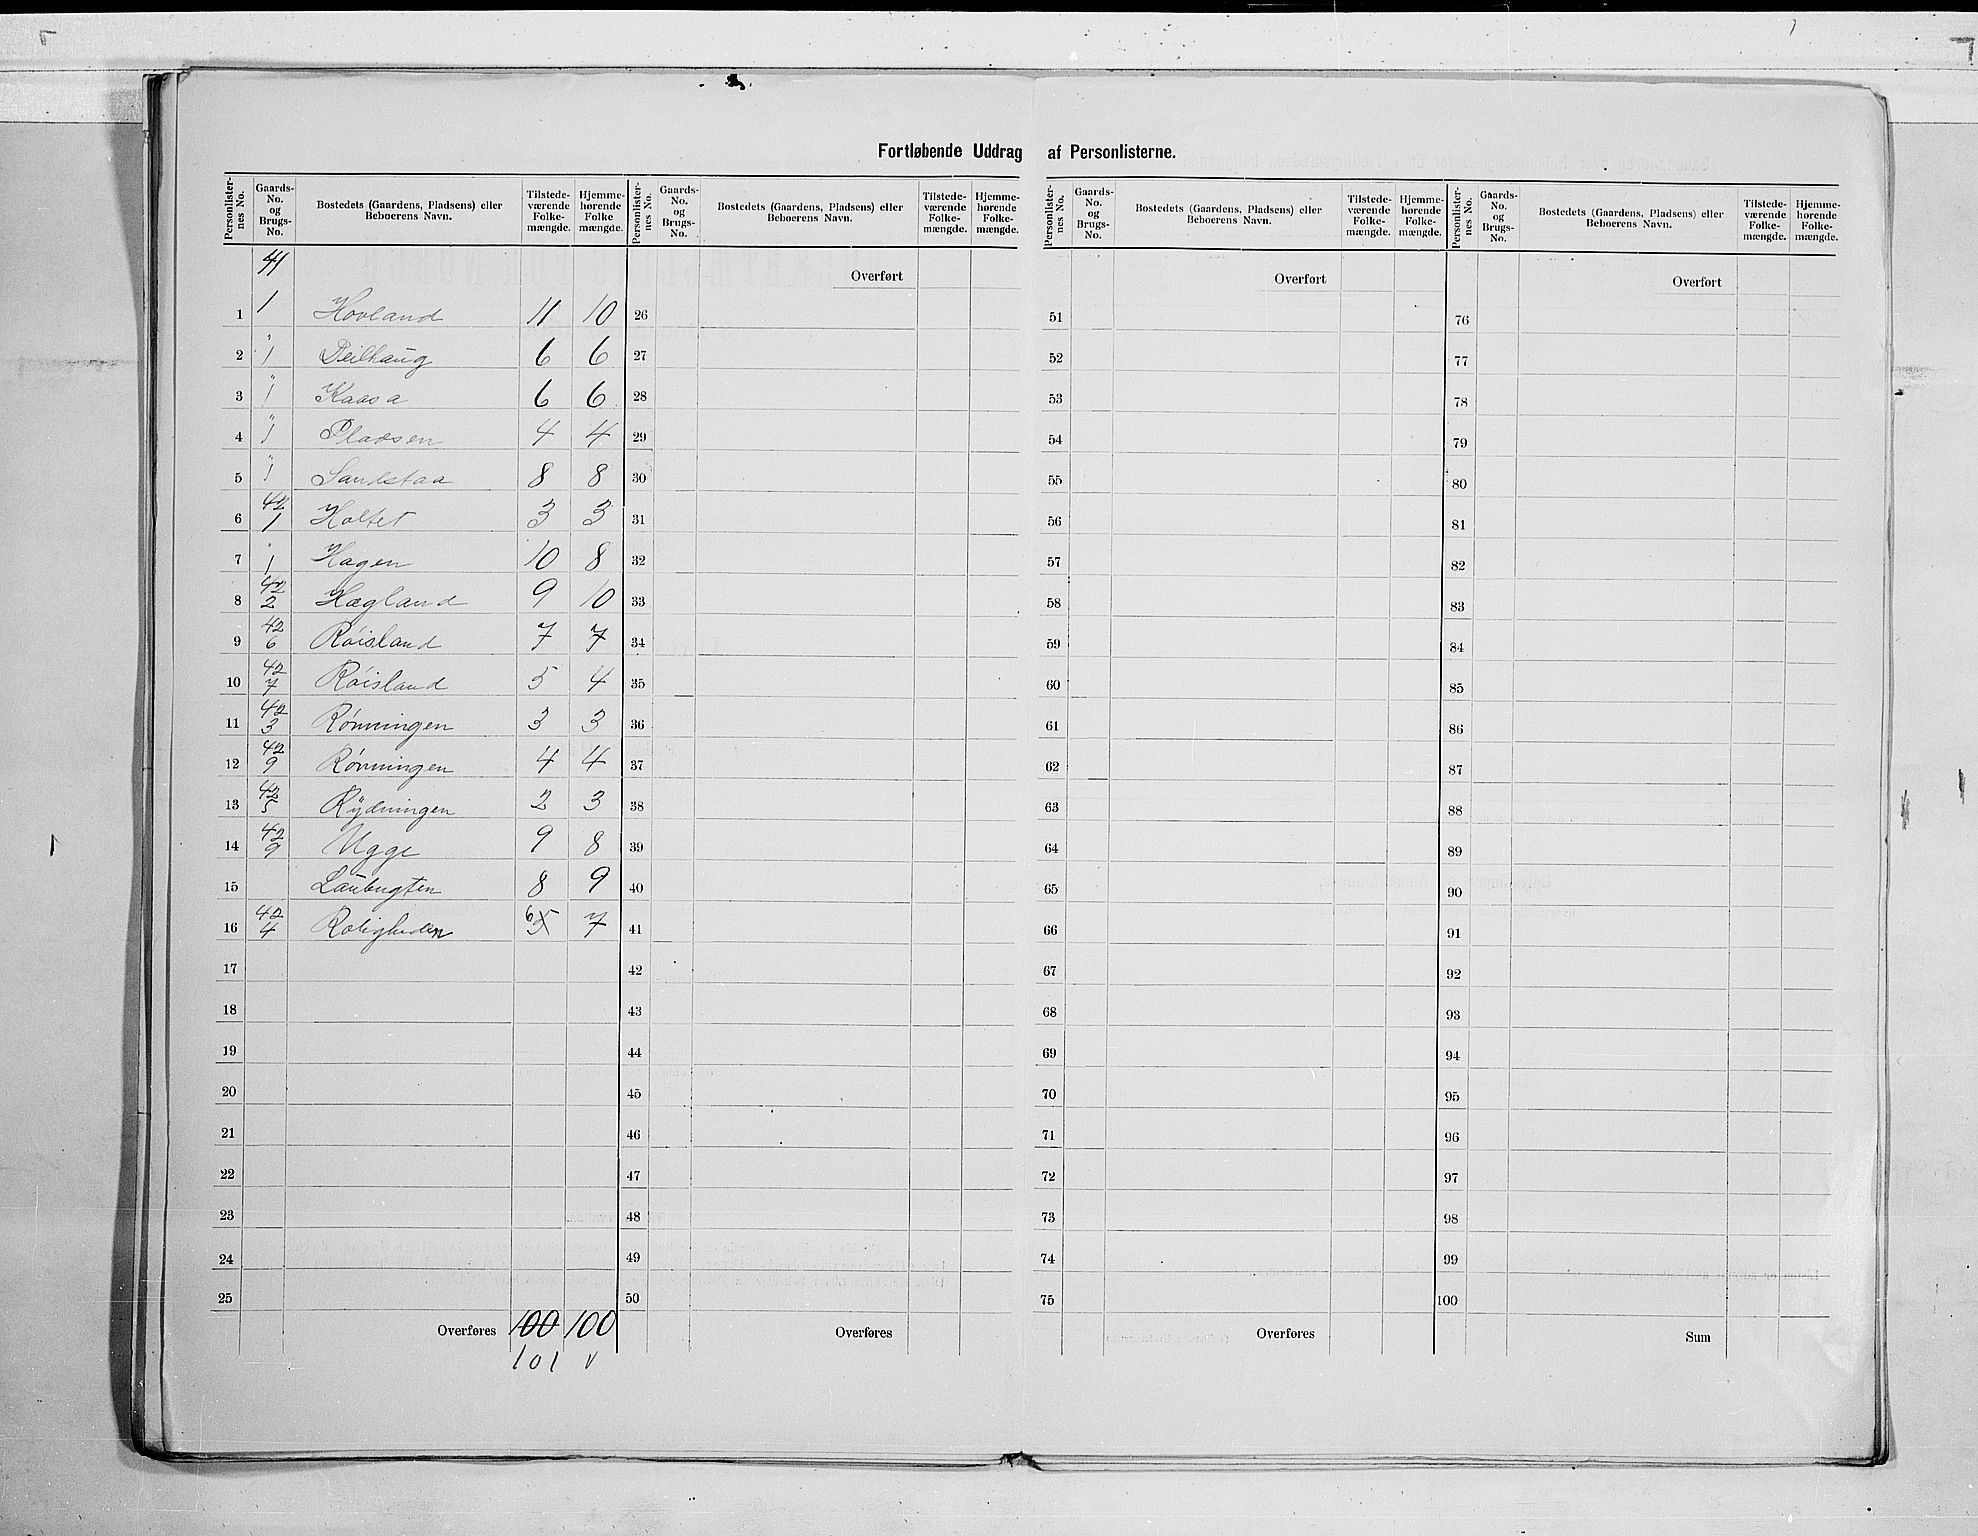 Fortløbende Uddrag af Personlisterne.
Personlister-nes No. Gaards-No. og Brugs-No. Bostedets (Gaardens, Pladsens) eller Beboerens Navn. Tilstede-værende Folke-mængde. Hjemme-hørende Folke mængde.
Personlister-nes No. Gaards-No. og Brugs-No. Bostedets (Gaardens, Pladsens) eller Beboerens Navn. Tilstede-værende Folke-mængde. Hjemme-hørende Folke-mængde.
Personlister-nes No. Gaards-No. og Brugs-No. Bostedets (Gaardens, Pladsens) eller Beboerens Navn. Tilstede-værende Folke-mængde. Hjemme-hørende Folke-mængde.
Personlister-nes No. Gaards-No. og Brugs-No. Bostedets (Gaardens, Pladsens) eller Beboerens Navn. Tilstede-værende Folke-mængde. Hjemme-hørende Folke-mængde.
41
1 1 Hovland 11 10
2 " 1 Deilhaug 6 6
3 " 1 Kaasa 6 6
4 " 1 Pladsen 4 4
5 " 1 Sandstaa 8 8
6 42 1 Holtet 3 3
7 " 1 Hagen 10 8
8 42 2 Hægland 9 10
9 42 6 Røisland 7 7
10 42 7 Røisland 5 4
11 42 3 Rønningen 3 3
12 42 9 Rønningen 4 4
13 42 5 Rydningen 2 3
14 42 9 Ugge 9 8
15 Laubugten 8 9
16 42 4 Roligheden 6 5 7
17
18
19
20
21
22
23
24
25
Overføres 100 100
101 v
Overført
26
27
28
29
30
31
32
33
34
35
36
37
38
39
40
41
42
43
44
45
46
47
48
49
50
Overføres
Overført
51
52
53
54
55
56
57
58
59
60
61
62
63
64
65
66
67
68
69
70
71
72
73
74
75
Overføres
Overført
76
77
78
79
80
81
82
83
84
85
86
87
88
89
90
91
92
93
94
95
96
97
98
99
100
Sum